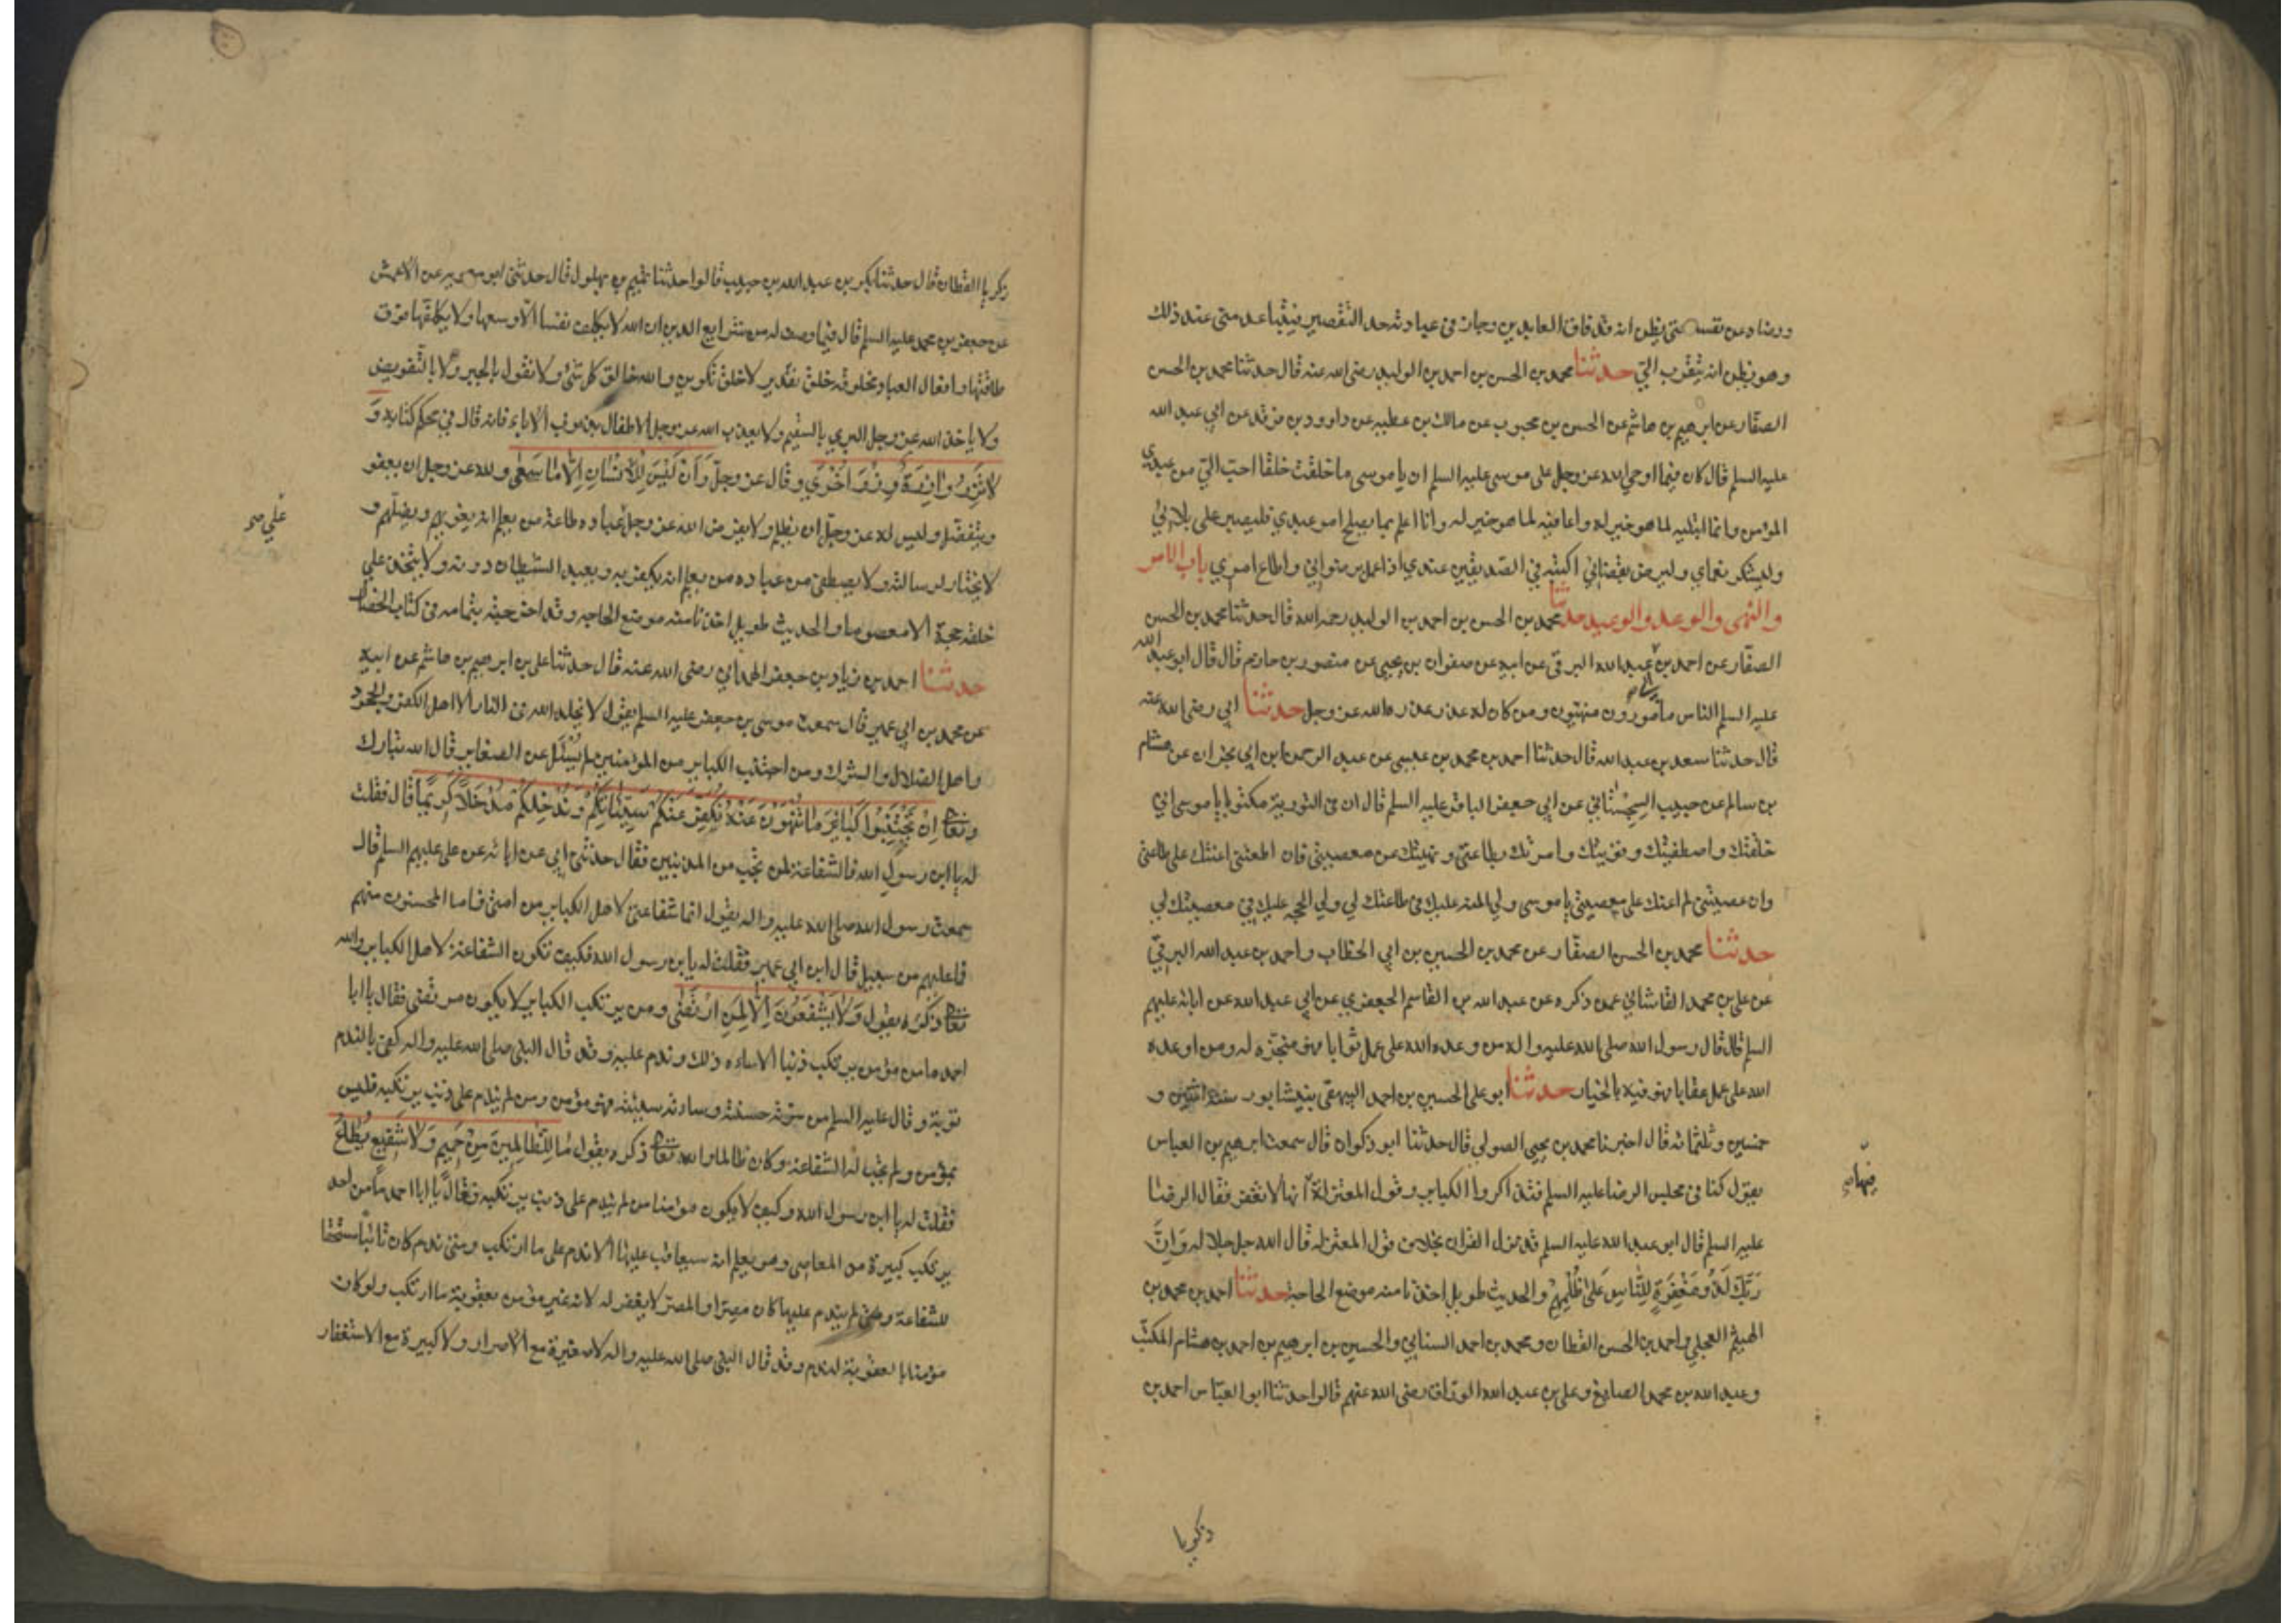 ورضاه عن نفسه حتى يظن انه قد فاق العابدين وجاز في عبادته حد التقصير فيتباعد مني عند ذلك
وهو يظن انه يتقرب الىّ حدثنا محمد بن الحسن بن احمد بن الوليد رضى الله عنه قال حدثنا محمد بن الحسن
الصفّار عن ابرهيم بن هاشم عن الحسن بن محبوب عن مالك بن عطيه عن داوود بن فرقد عن ابي عبد الله
عليه السلم قال كان فيما اوحى الله عز وجل على موسى عليه السلم ان يا موسى ما خلقت خلقا احبّ الىّ من عبدي
المؤمن وانما ابتليه لما هو خير له واعافيه لما هو خير له وانا اعلم بما يصلح امر عبدي فليصبر على بلائي
وليشكر نعماي وليرض بقضائي اكتبه في الصديقين عندي اذا عمل برضواني واطاع امري باب الامر
والنهى والوعد والوعيد حدثنا محمد بن الحسن بن احمد بن الوليد رحمه الله قال حدثنا محمد بن الحسن
الصفّار عن احمد بن عبد الله البرقي عن ابيه عن صفوان بن يحيى عن منصور بن حازم قال قال ابو عبد الله
عليه السلم الناس مأمورون منهيون ومن كان له عذر عذره الله عز وجل حدثنا ابي رضى الله عنه
قال حدثنا سعد بن عبد الله قال حدثنا احمد بن محمد بن عيسى عن عبد الرحمن ابن ابي نجران عن هشام
بن سالم عن حبيب السِجِسْتاني عن ابي جعفر الباقر عليه السلم قال ان في التورية مكتوبا يا موسى اني
خلقتك واصطفيتك وقويتك وامرتك بطاعتي ونهيتك عن معصيتي فان اطعتني اعنتك على طاعتي
وان عصيتني لم اعنك على معصيتي يا موسى ولي المنه عليك في طاعتك لي ولي الحجه عليك في معصيتك لي
حدثنا محمد بن الحسن الصفّار عن محمد بن الحسين بن ابي الخطاب واحمد بن عبد الله البرقيّ
عن علي بن محمد القاشاني عمن ذكره عن عبد الله بن القاسم الجعفري عن ابي عبد الله عن ابائه عليهم
السلم قال قال رسول الله صلى الله عليه واله من وعده الله على عمل ثوابا فهو منجزه له ومن اوعده
الله على عمل عقابا فهو فيه بالخيار حدثنا ابو علي الحسين بن احمد البيهقي بنيشابور سنة اثنتين و
خمسين وثلثمائة قال اخبرنا محمد بن يحيى الصولي قال حدثنا ابو ذكوان قال سمعت ابرهيم بن العباس
يقول كنا في مجلس الرضا عليه السلم فتذاكروا الكباير وقول المعتزلة انها لا تغفر فقال الرضا
فيها
عليه السلم قال ابو عبد الله عليه السلم قد نزل القران بخلاف قول المعتزله قال الله جل جلاله وَاِنَّ
رَبَّكَ لَذُو مَغْفِرَةٍ لِلنَّاسِ عَلٰى ظُلْمِهِمْ والحديث طويل اخذنا منه موضع الحاجة حدثنا احمد بن محمد بن
الهيثم العجلي واحمد بن الحسن القطان ومحمد بن احمد السناني والحسين بن ابرهيم بن احمد بن هشام المكتب
وعبد الله بن محمد الصايغ وعلي بن عبد الله الوراق رضى الله عنهم قالوا حدثنا ابو العباس احمد بن
زكريا
زكريا القطان قال حدثنا بكر بن عبد الله بن حبيب قالوا حدثنا تميم بن بهلول قال حدثني ابو معويه عن الاعمش
عن جعفر بن محمد عليه السلم قال فيما وصف له من شرايع الدين ان الله لا يكلف نفسا الّا وسعها ولا يكلفها فوق
طاقتها وافعال العباد مخلوقه خلق تقدير لا خلق تكوين والله خالق كل شئ ولا نقول بالجبر ولا بالتفويض
ولا يأخذ الله عز وجل البري بالسقيم ولا يعذب الله عز وجل الاطفال بذنوب الاباء فانه قال في محكم كتابه وَ
لا تَزِرُ وازِرَةٌ وِزْرَ اُخْرَى وقال عز وجلّ وَاَنْ لَيْسَ لِلْاِنْسَانِ اِلَّا مَا سَعٰى ولله عز وجل ان يعفو
ويتفضّل وليس له عز وجلّ ان يظلم ولا يفرض الله عز وجل على عباده طاعة من يعلم انه يغويهم ويضلّهم و
على
لا يختار لرسالته ولا يصطفي من عباده من يعلم انه يكفر به ويعبد الشيطان دونه ولا يتخذ على
خلقه حجة الا معصوما والحديث طويل اخذنا منه موضع الحاجه وقد اخرجته بتمامه في كتاب الخصال
حدثنا احمد بن زياد بن جعفر الهمداني رضى الله عنه قال حدثنا علي بن ابرهيم بن هاشم عن ابيه
عن محمد بن ابي عمير قال سمعت موسى بن جعفر عليه السلم يقول لا يخلد الله في النار الا اهل الكفر والجحود
واهل الضلال والشرك ومن اجتنب الكباير من المؤمنين لم يُسْئَل عن الصغاير قال الله تبارك
وتعا اِنْ تَجْتَنِبُوا كَبَائِرَ مَا تُنْهَوْنَ عَنْهُ نُكَفِّرْ عَنْكُمْ سَيِّئَاتِكُمْ وَنُدْخِلْكُمْ مُدْخَلًا كَرِيمًا قال فقلت
له يا ابن رسول الله فالشفاعة لمن تجب من المذنبين فقال حدثني ابي عن ابائه عن علي عليهم السلم قال
سمعت رسول الله صلى الله عليه واله يقول انما شفاعتي لاهل الكباير من امتي فاما المحسنون منهم
فما عليهم من سبيل قال ابن ابي عمير فقلت له يا بن رسول الله فكيف تكون الشفاعة لاهل الكباير والله
تعا ذكره يقول وَلَا يَشْفَعُونَ اِلَّا لِمَنِ ارْتَضٰى ومن يرتكب الكباير لا يكون مرتضى فقال يا ابا
احمد ما من مؤمن يرتكب ذنبا الا ساءه ذلك وندم عليه وقد قال النبي صلى الله عليه واله كفى بالندم
توبة وقال عليه السلم من سرته حسنته وسائته سيئته فهو مؤمن ومن لم يندم على ذنب يرتكبه فليس
بمؤمن ولم تجب له الشفاعة وكان ظالما والله تعا ذكره يقول مَا لِلظَّالِمِينَ مِنْ حَمِيمٍ وَلَا شَفِيعٍ يُطَاعُ
فقلت له يا ابن رسول الله وكيف لا يكون مؤمنا من لم يندم على ذنب يرتكبه فقال يا ابا احمد ما من احد
يرتكب كبيرة من المعاصي وهو يعلم انه سيعاقب عليها الا ندم على ما ارتكب ومتى ندم كان تائبا مستحقا
للشفاعة ومتى لم يندم عليها كان مصرّا والمصرّ لا يغفر له لانه غير مؤمن بعقوبة ما ارتكب ولو كان
مؤمنا بالعقوبة لندم وقد قال النبي صلى الله عليه واله لا صغيرة مع الاصرار ولا كبيرة مع الاستغفار